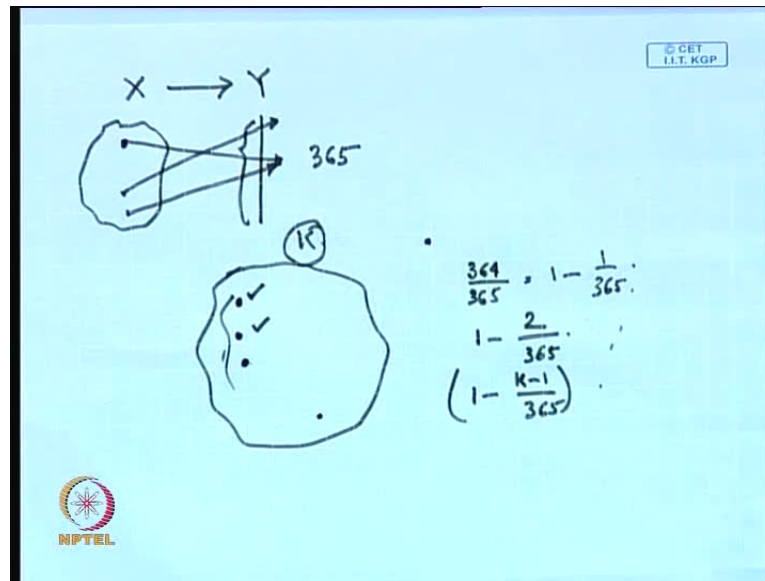 © CET
I.I.T. KGP
X → Y
365
K
364/365 = 1 - 1/365 .
1 - 2/365 .
(1 - K-1/365) .
NPTEL